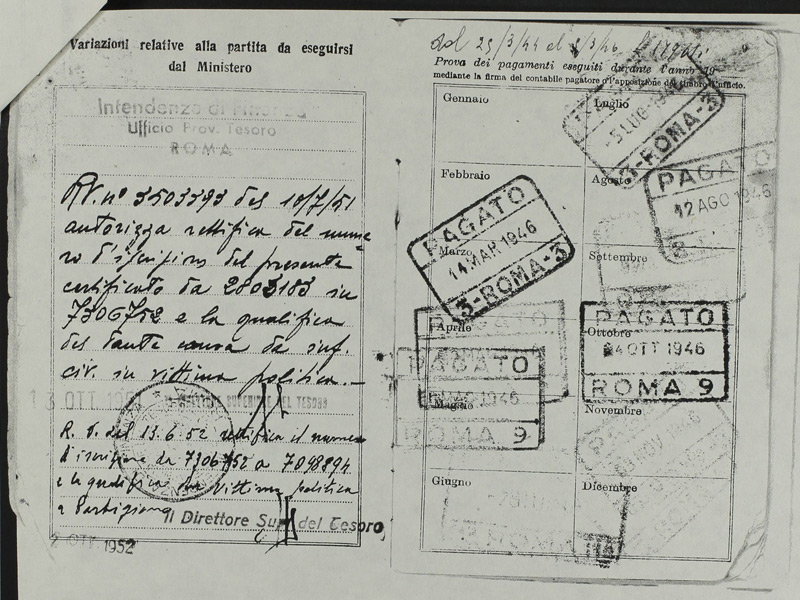 Variazioni relative alla partita da eseguirsi
dal Ministero
Intendenza di Finanza
Ufficio Prov. Tesoro
ROMA
RV. n° 3503393 del 10/7/51
autorizza rettifica del nume
ro d'iscrizione del presente
certificato da 2803183 in
7306752 e la qualifica
del dante causa da inf.
civ. in vittima politica.-
13 OTT 195
R. V. del 13.6.52 rettifica il numero
d'iscrizione da 7306752 a 7098894
e la qualifica da vittima politica
a Partigiano
Il Direttore Sup. del Tesoro
2 OTT. 1952
dal 25/3/44 al /3/46
Prova dei pagamenti eseguiti durante l'anno 19
mediante la firma del contabile pagatore o l'apposizione del timbro d'ufficio.
Gennaio
Febbraio
Marzo
PAGATO
14 MAR 1946
3-ROMA-3
Aprile
PAGATO
Maggio
PAGATO
1946
ROMA 9
Giugno
Luglio
5 LUG 194
3-ROMA-3
Agosto
PAGATO
12 AGO 1946
Settembre
Ottobre
PAGATO
4 OTT 1946
ROMA 9
Novembre
NOV
Dicembre